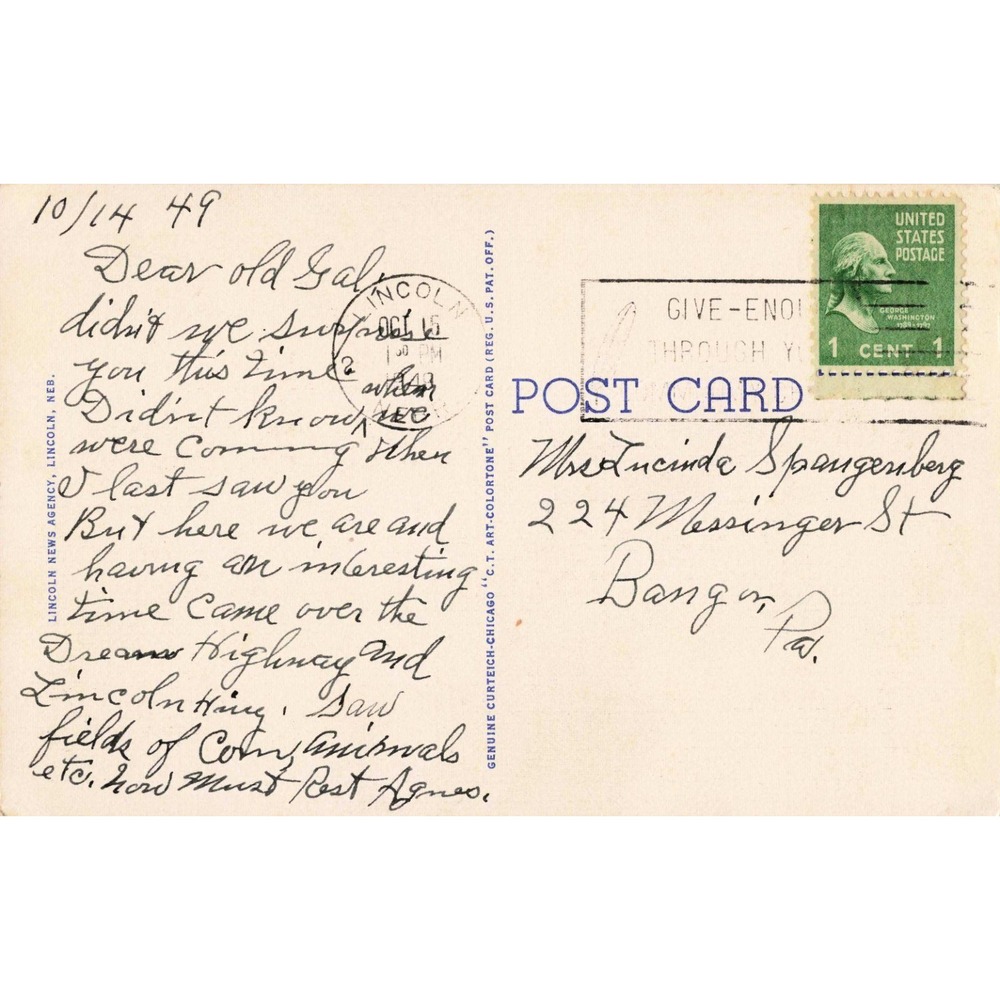 10/14 49
Dear old Gal,
didn't we surprise
you this time?
when
Didn't know we
were coming when
I last saw you
But here we are and
having an interesting
time Came over the
Dream Highway and
Lincoln Hiwy. Saw
fields of Corn, animals
etc. now must Rest Agnes.
LINCOLN NEWS AGENCY, LINCOLN, NEB.
GENUINE CURTEICH-CHICAGO "C.T. ART-COLORTONE" POST CARD (REG. U.S. PAT. OFF.)
LINCOLN
OCT 15
PM
1949
GIVE-ENOU
THROUGH Y
UNITED
STATES
POSTAGE
GEORGE
WASHINGTON
1789-1797
1 CENT 1
POST CARD
Mrs Lucinda Spangenberg
224 Messinger St
Bangor,
Pa.